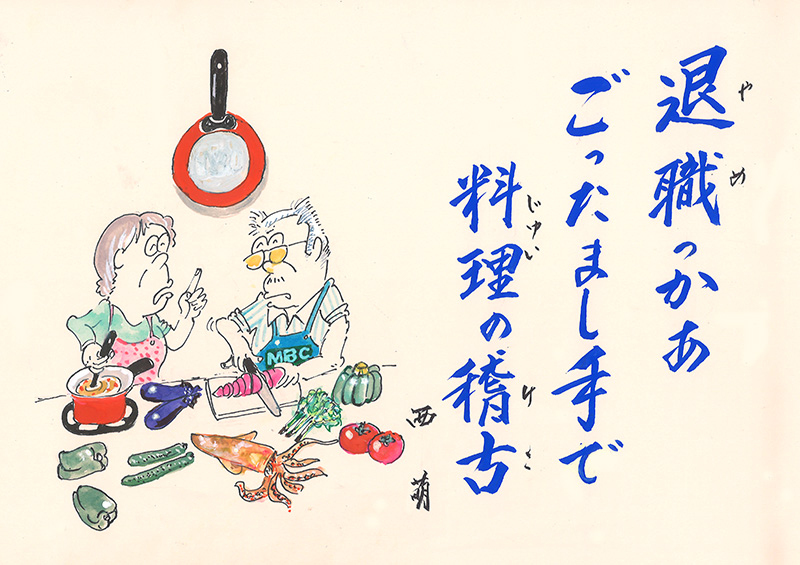 退職っかあ
やめ
ごったまし手で
料理の稽古
じゅい
けこ
西萌
MBC